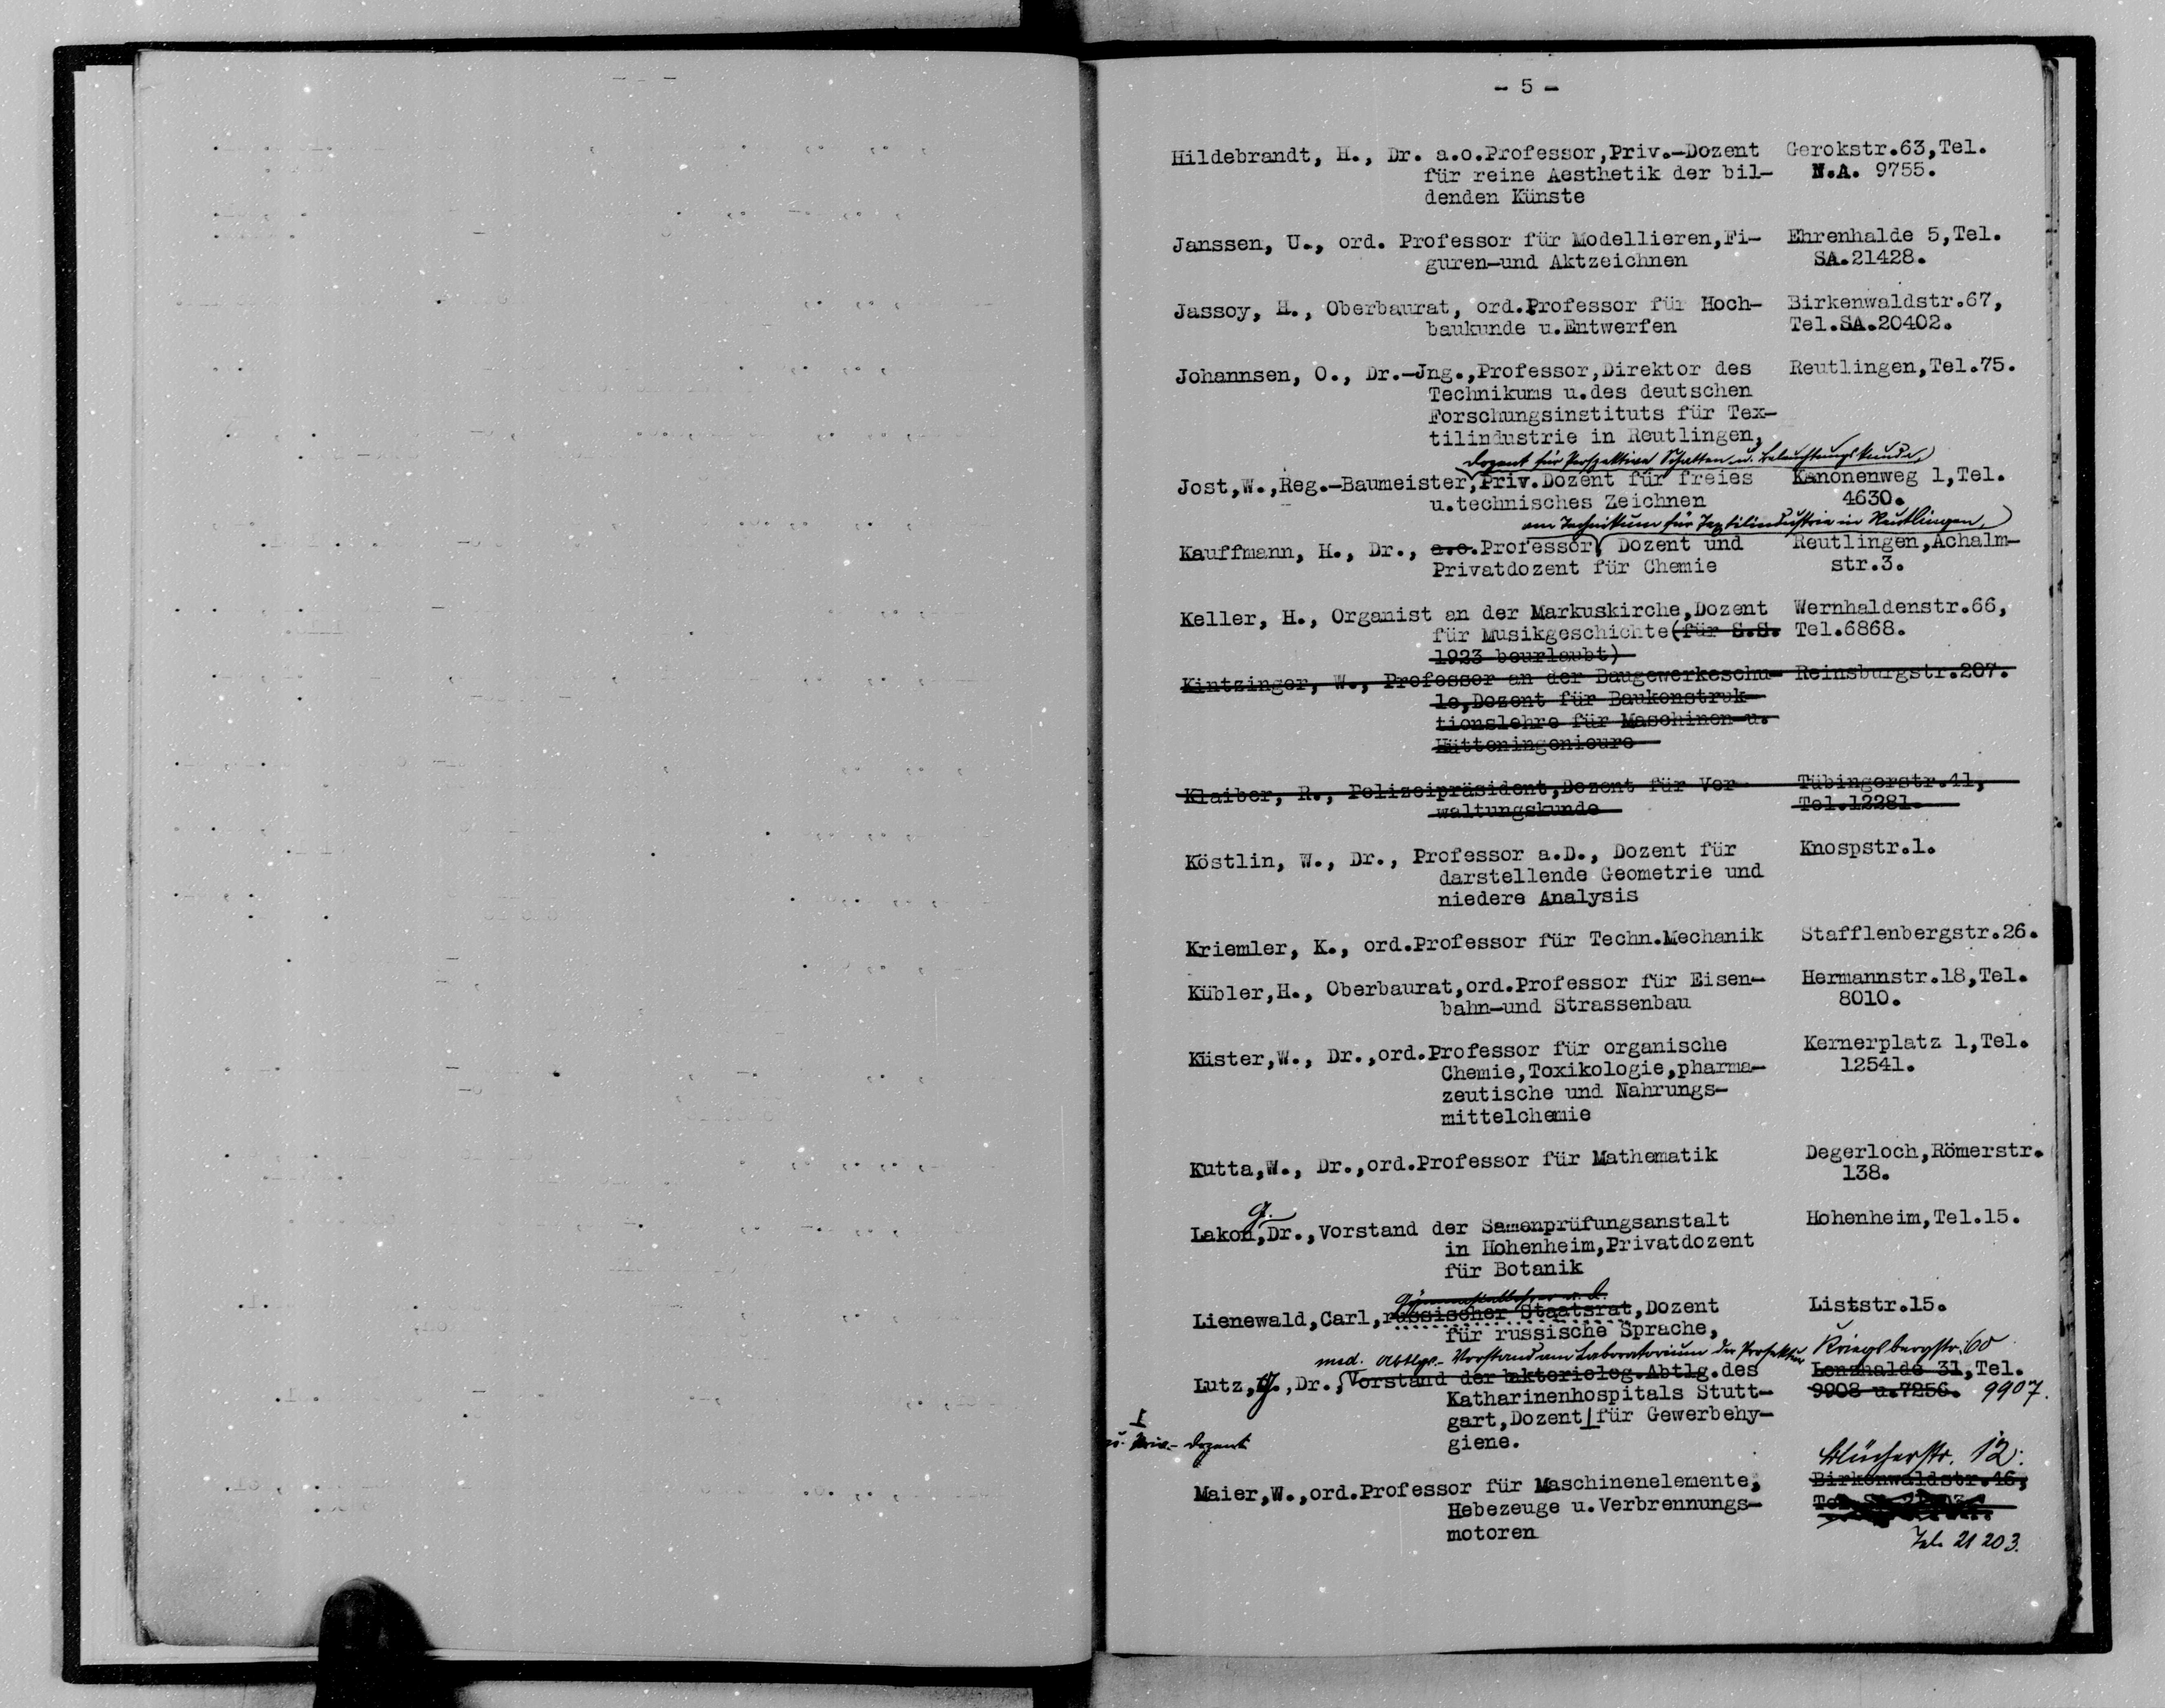 - 5 -
Hildebrandt, H., Dr. a.o.Professor,Priv.-Dozent Gerokstr.63,Tel.
für reine Aesthetik der bil- N.A. 9755.
denden Künste
Janssen, U., ord. Professor für Modellieren,Fi- Ehrenhalde 5,Tel.
guren-und Aktzeichnen SA.21428.
Jassoy, H., Oberbaurat, ord.Professor für Hoch- Birkenwaldstr.67,
baukunde u.Entwerfen Tel.SA.20402.
Johannsen, O., Dr.-Jng.,Professor,Direktor des Reutlingen,Tel.75.
Technikums u.des deutschen
Forschungsinstituts für Tex-
tilindustrie in Reutlingen,
Dozent für Perspektive Schatten u. Beleuchtungskunde,
Jost,W.,Reg.-Baumeister,Priv.Dozent für freies Kanonenweg 1,Tel.
u.technisches Zeichnen 4630.
am Technikum für Textilindustrie in Reutlingen,
Kauffmann, H., Dr., a.o.Professor, Dozent und Reutlingen,Achalm-
Privatdozent für Chemie str.3.
Keller, H., Organist an der Markuskirche,Dozent Wernhaldenstr.66,
für Musikgeschichte(für S.S. Tel.6868.
1923 beurlaubt)
Kintzinger, W., Professor an der Baugewerkeschu- Reinsburgstr.207.
le,Dozent für Baukonstruk-
tionslehre für Maschinen-u.
Hütteningenieure
Klaiber, R., Polizeipräsident,Dozent für Ver- Tübingerstr.41,
waltungskunde Tel.12281.
Köstlin, W., Dr., Professor a.D., Dozent für Knospstr.1.
darstellende Geometrie und
niedere Analysis
Kriemler, K., ord.Professor für Techn.Mechanik Stafflenbergstr.26.
Kübler,H., Oberbaurat,ord.Professor für Eisen- Hermannstr.18,Tel.
bahn-und Strassenbau 8010.
Küster,W., Dr.,ord.Professor für organische Kernerplatz 1,Tel.
Chemie,Toxikologie,pharma- 12541.
zeutische und Nahrungs-
mittelchemie
Kutta,W., Dr.,ord.Professor für Mathematik Degerloch,Römerstr.
138.
G.
Lakon,Dr.,Vorstand der Samenprüfungsanstalt Hohenheim,Tel.15.
in Hohenheim,Privatdozent
für Botanik
Lienewald,Carl,russischer Staatsrat,Dozent Liststr.15.
für russische Sprache,
med. Abtlgs.- Vorstand am Laboratorium der Prosektur Kriegsbergstr. 60
Lutz, Dr., Vorstand der bakteriolog.Abtlg.des Lenzhalde 31,Tel.
Katharinenhospitals Stutt- 9908 u.7256. 9907.
gart,Dozent für Gewerbehy-
u. Priv.- Dozent giene.
Blücherstr. 12.
Maier,W.,ord.Professor für Maschinenelemente, Birkenwaldstr.46,
Hebezeuge u.Verbrennungs-
motoren
Tel. 21 203.